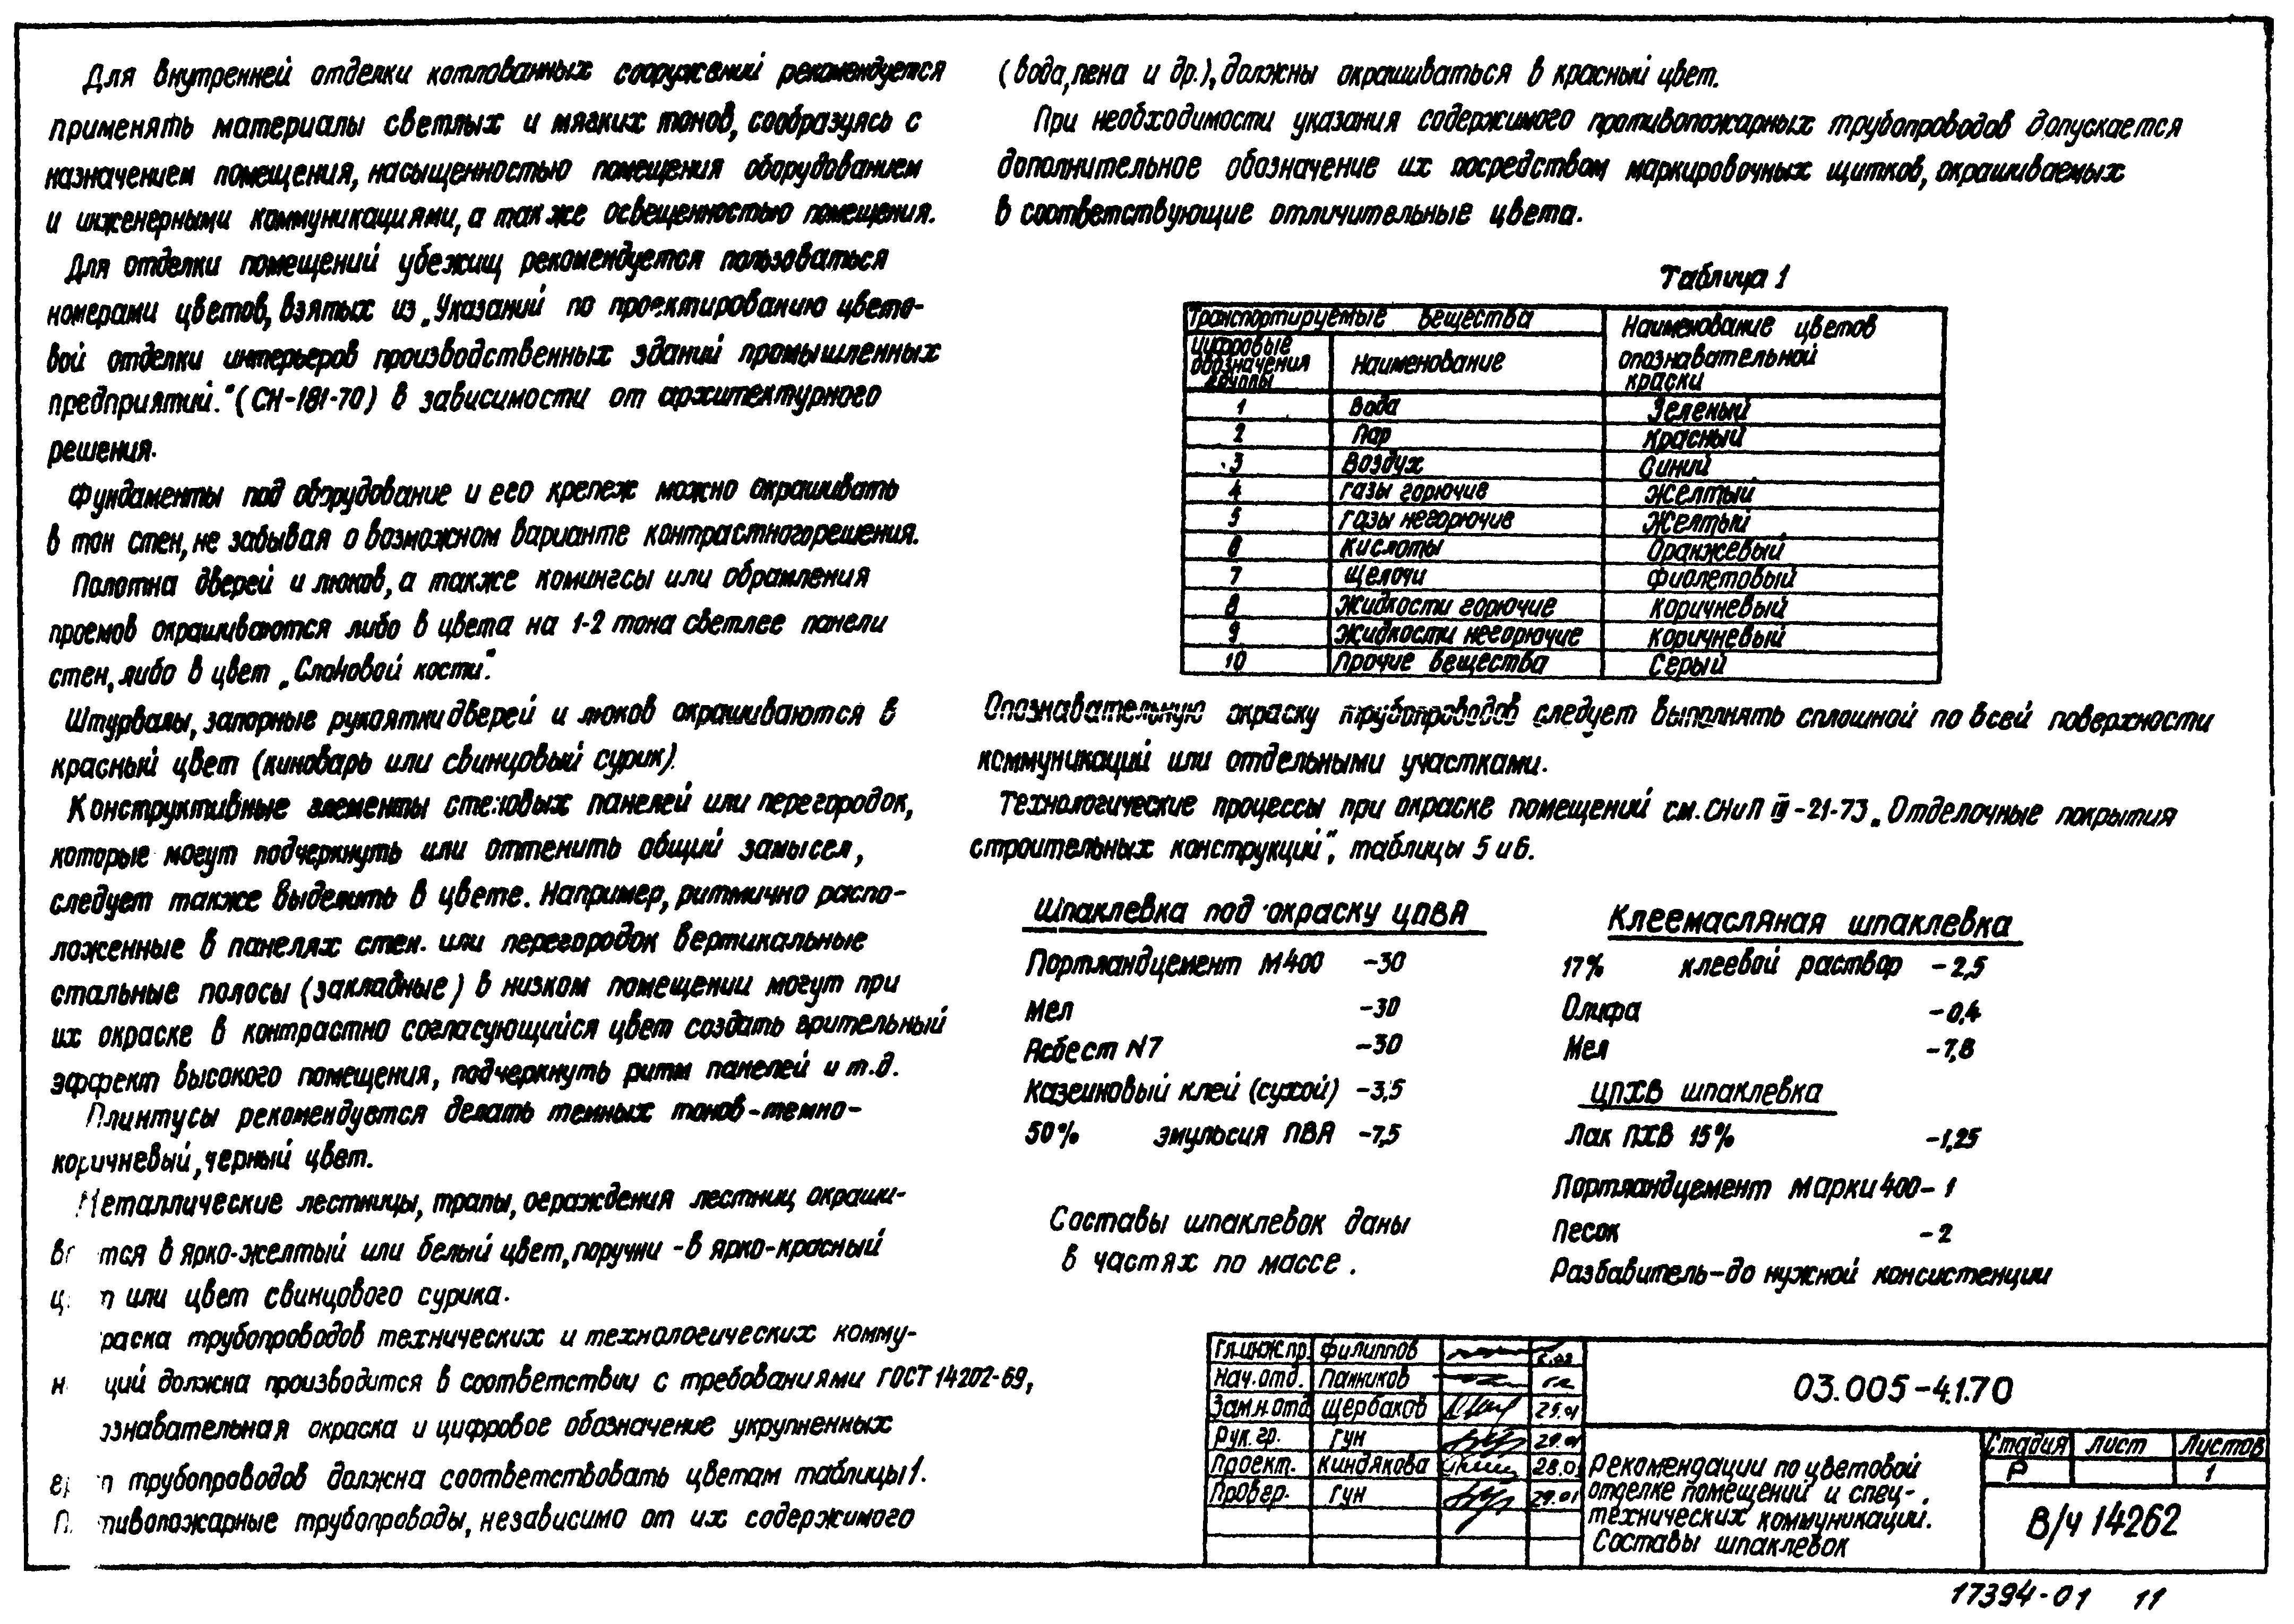 Для внутренней отделки котлованных сооружений рекомендуется
применять материалы светлых и мягких тонов, сообразуясь с
назначением помещения, насыщенностью помещения оборудованием
и инженерными коммуникациями, а также освещенностью помещения.
Для отделки помещений убежищ рекомендуется пользоваться
номерами цветов, взятых из „Указаний по проектированию цвето-
вой отделки интерьеров производственных зданий промышленных
предприятий." (СН-181-70) в зависимости от архитектурного
решения.
Фундаменты под оборудование и его крепеж можно окрашивать
в тон стен, не забывая о возможном варианте контрастного решения.
Полотна дверей и люков, а также комингсы или обрамления
проемов окрашиваются либо в цвета на 1-2 тона светлее панели
стен, либо в цвет „Слоновой кости".
Штурвалы, запорные рукоятки дверей и люков окрашиваются в
красный цвет (киноварь или свинцовый сурик).
Конструктивные элементы стеновых панелей или перегородок,
которые могут подчеркнуть или оттенить общий замысел,
следует также выделить в цвете. Например, ритмично распо-
ложенные в панелях стен. или перегородок вертикальные
стальные полосы (закладные) в низком помещении могут при
их окраске в контрастно согласующийся цвет создать зрительный
эффект высокого помещения, подчеркнуть ритм панелей и т.д.
Плинтусы рекомендуется делать темных тонов - темно-
коричневый, черный цвет.
Металлические лестницы, трапы, ограждения лестниц окраши-
в тся в ярко-желтый или белый цвет, поручни - в ярко-красный
ц т или цвет свинцового сурика.
раска трубопроводов технических и технологических комму-
н ций должна производится в соответствии с требованиями ГОСТ 14202-69,
ознавательная окраска и цифровое обозначение укрупненных
гр п трубопроводов должна соответствовать цветам таблицы 1.
П тивопожарные трубопроводы, независимо от их содержимого
(вода, пена и др.), должны окрашиваться в красный цвет.
При необходимости указания содержимого противопожарных трубопроводов допускается
дополнительное обозначение их посредством маркировочных щитков, окрашиваемых
в соответствующие отличительные цвета.
Таблица 1
Транспортируемые вещества
Наименование цветов
опознавательной
краски
Цифровые
обозначения
группы
Наименование
1 Вода Зеленый
2 Пар Красный
3 Воздух Синий
4 Газы горючие Желтый
5 Газы негорючие Желтый
6 Кислоты Оранжевый
7 Щелочи Фиолетовый
8 Жидкости горючие Коричневый
9 Жидкости негорючие Коричневый
10 Прочие вещества Серый
Опознавательную окраску трубопроводов следует выполнять сплошной по всей поверхности
коммуникаций или отдельными участками.
Технологические процессы при окраске помещений см. СНиП III-21-73 „Отделочные покрытия
строительных конструкций", таблицы 5 и 6.
Шпаклевка под окраску ЦПВА
Портландцемент М400 -30
Мел -30
Асбест N7 -30
Казеиновый клей (сухой) -3,5
50% эмульсия ПВА -7,5
Составы шпаклевок даны
в частях по массе.
Клеемасляная шпаклевка
17% клеевой раствор -2,5
Олифа -0,4
Мел -7,8
ЦПХВ шпаклевка
Лак ПХВ 15% -1,25
Портландцемент марки 400- 1
Песок -2
Разбавитель - до нужной консистенции
Гл.инж.пр. Филиппов
Нач.отд. Панников
Зам.н.отд Щербаков 25.01
Рук.гр. Гун 29.01
Проект. Киндякова 28.01
Провер. Гун 29.01
03.005-41.70
Рекомендации по цветовой
отделке помещений и спец-
технических коммуникаций.
Составы шпаклевок
Стадия Лист Листов
Р 1
В/Ч 14262
17394-01 11